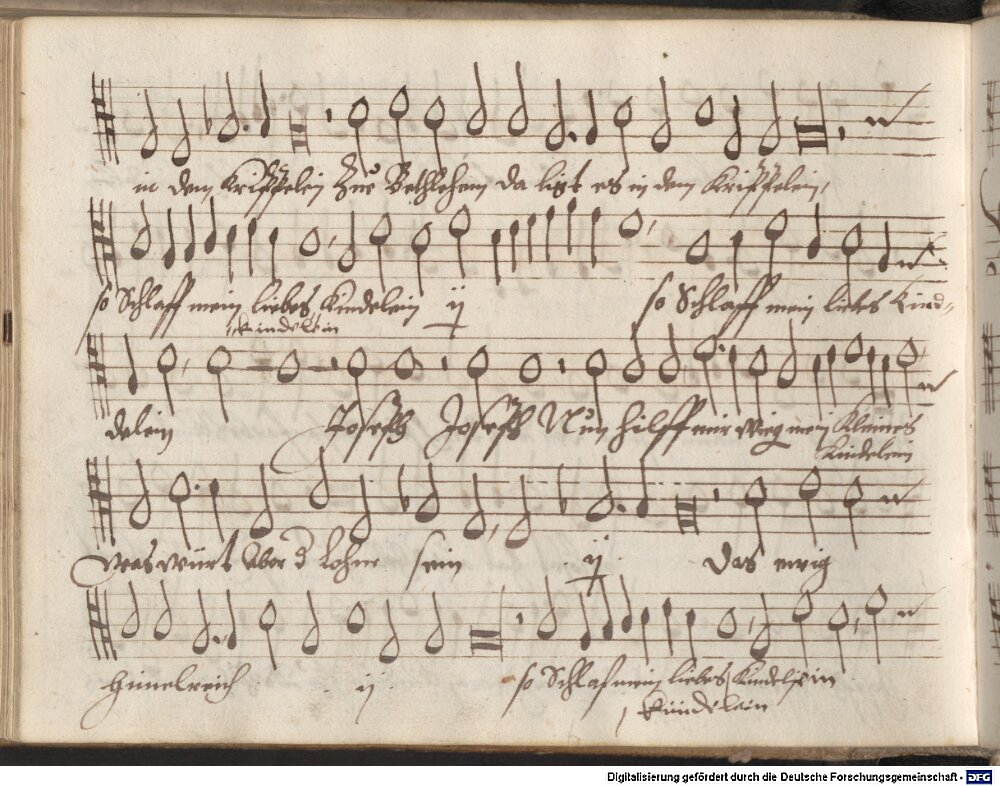 in dem Krippelein Zue Bethlehem da ligt es in dem Krippelein,
so Schlaff mein liebes Kindelein ij so Schlaff mein liebes Kind-
kindelein
delein Joseph Joseph Nun hilff mir wieg mein Kleines
Kindelein
was würt aber d Lohne sein ij das ewig
himelreich ij so Schlaf mein liebes Kindelein
kindelein
Digitalisierung gefördert durch die Deutsche Forschungsgemeinschaft - DFG